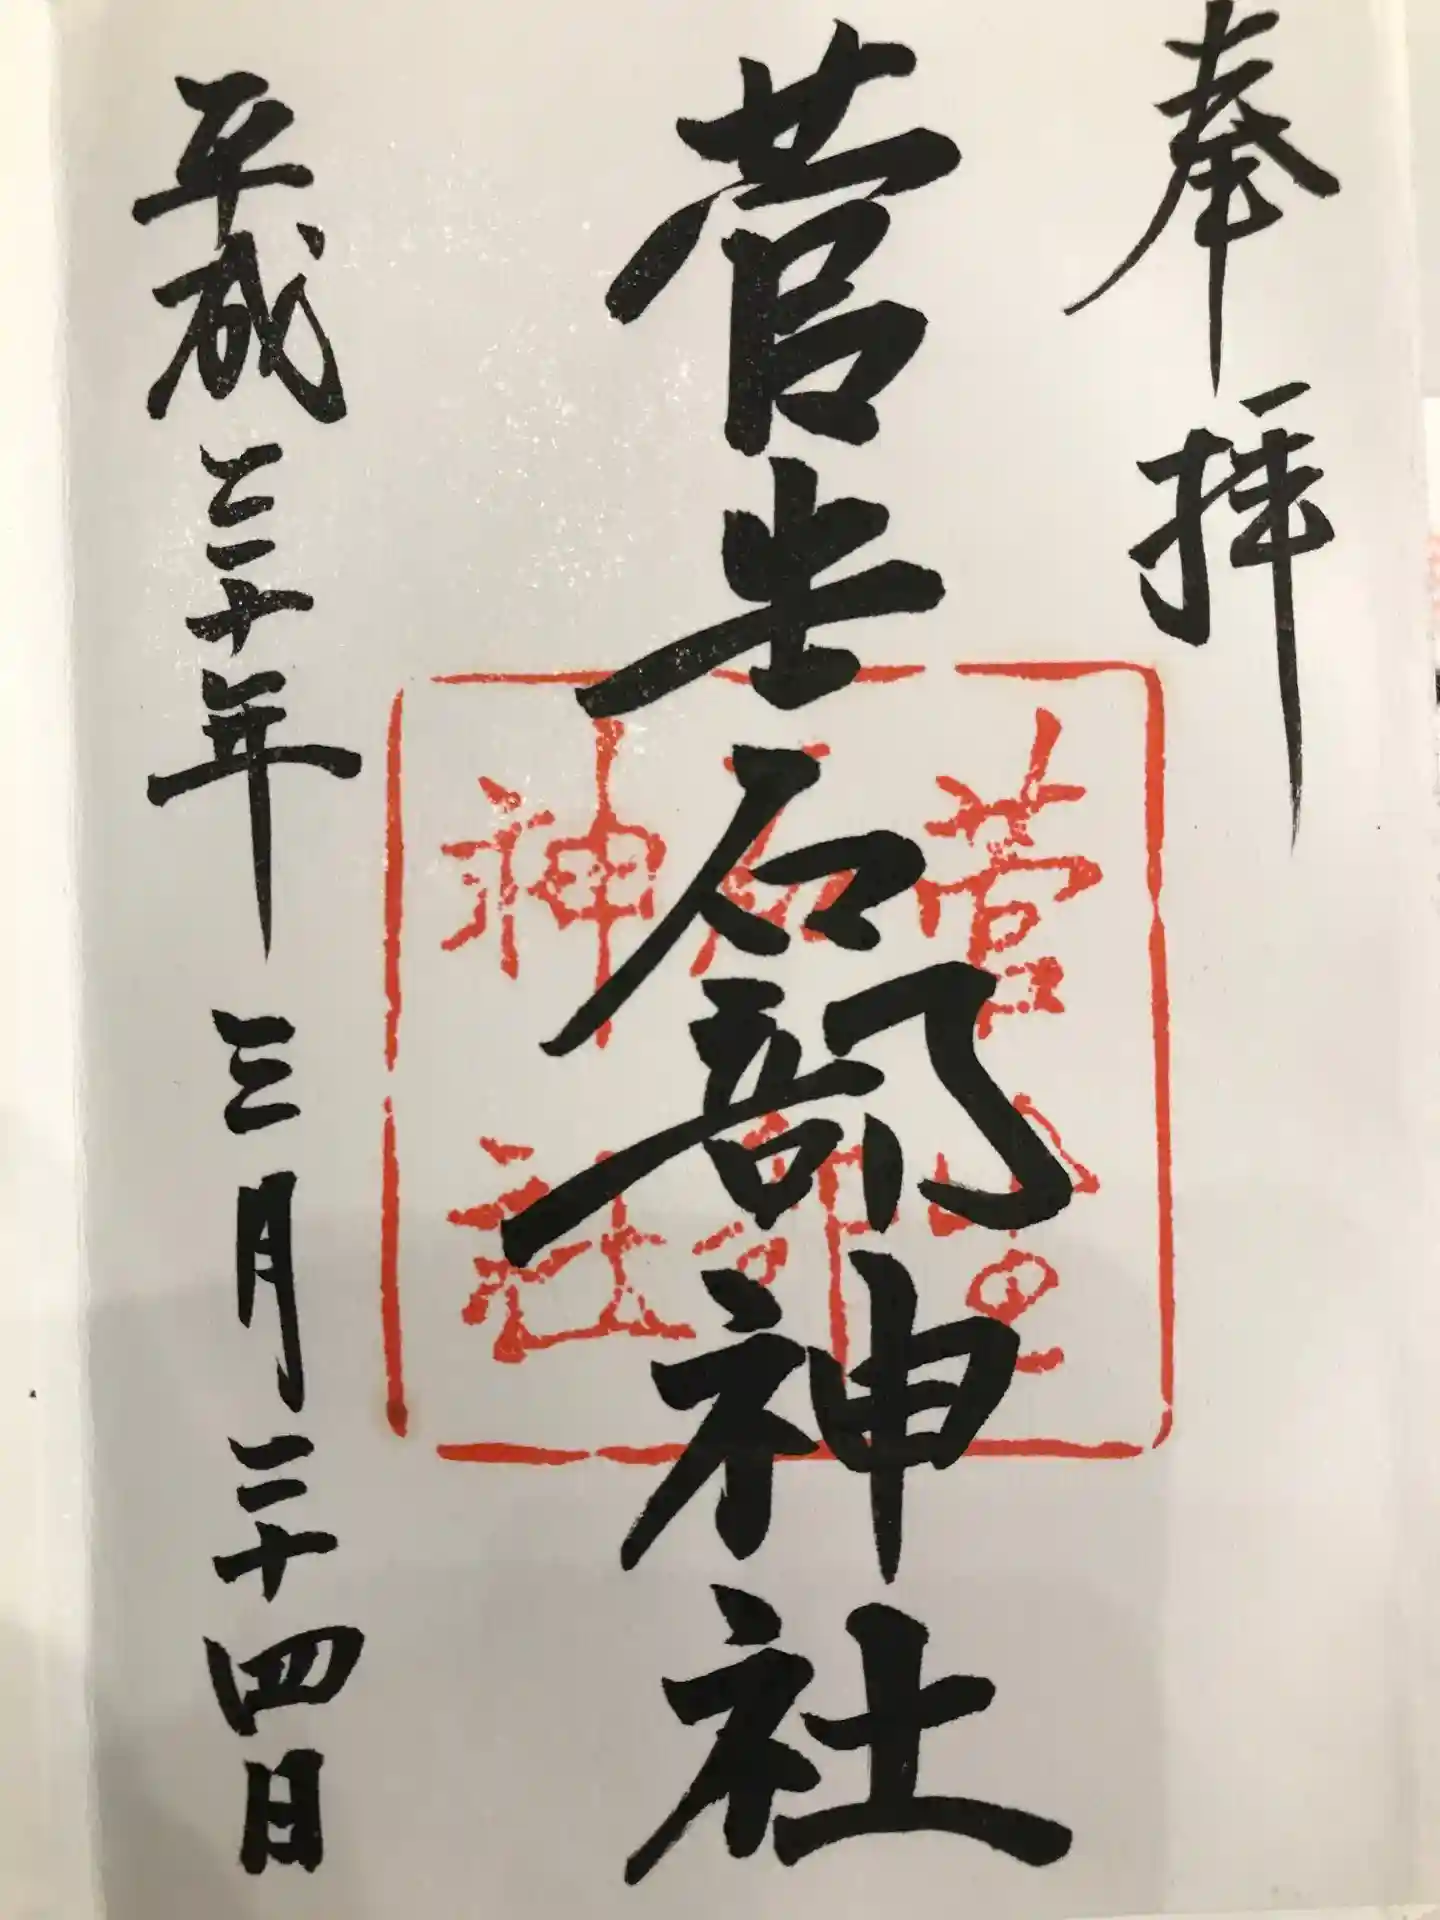 奉拝
菅生石部神社
菅生石部神社
平成三十年 三月 二十四日